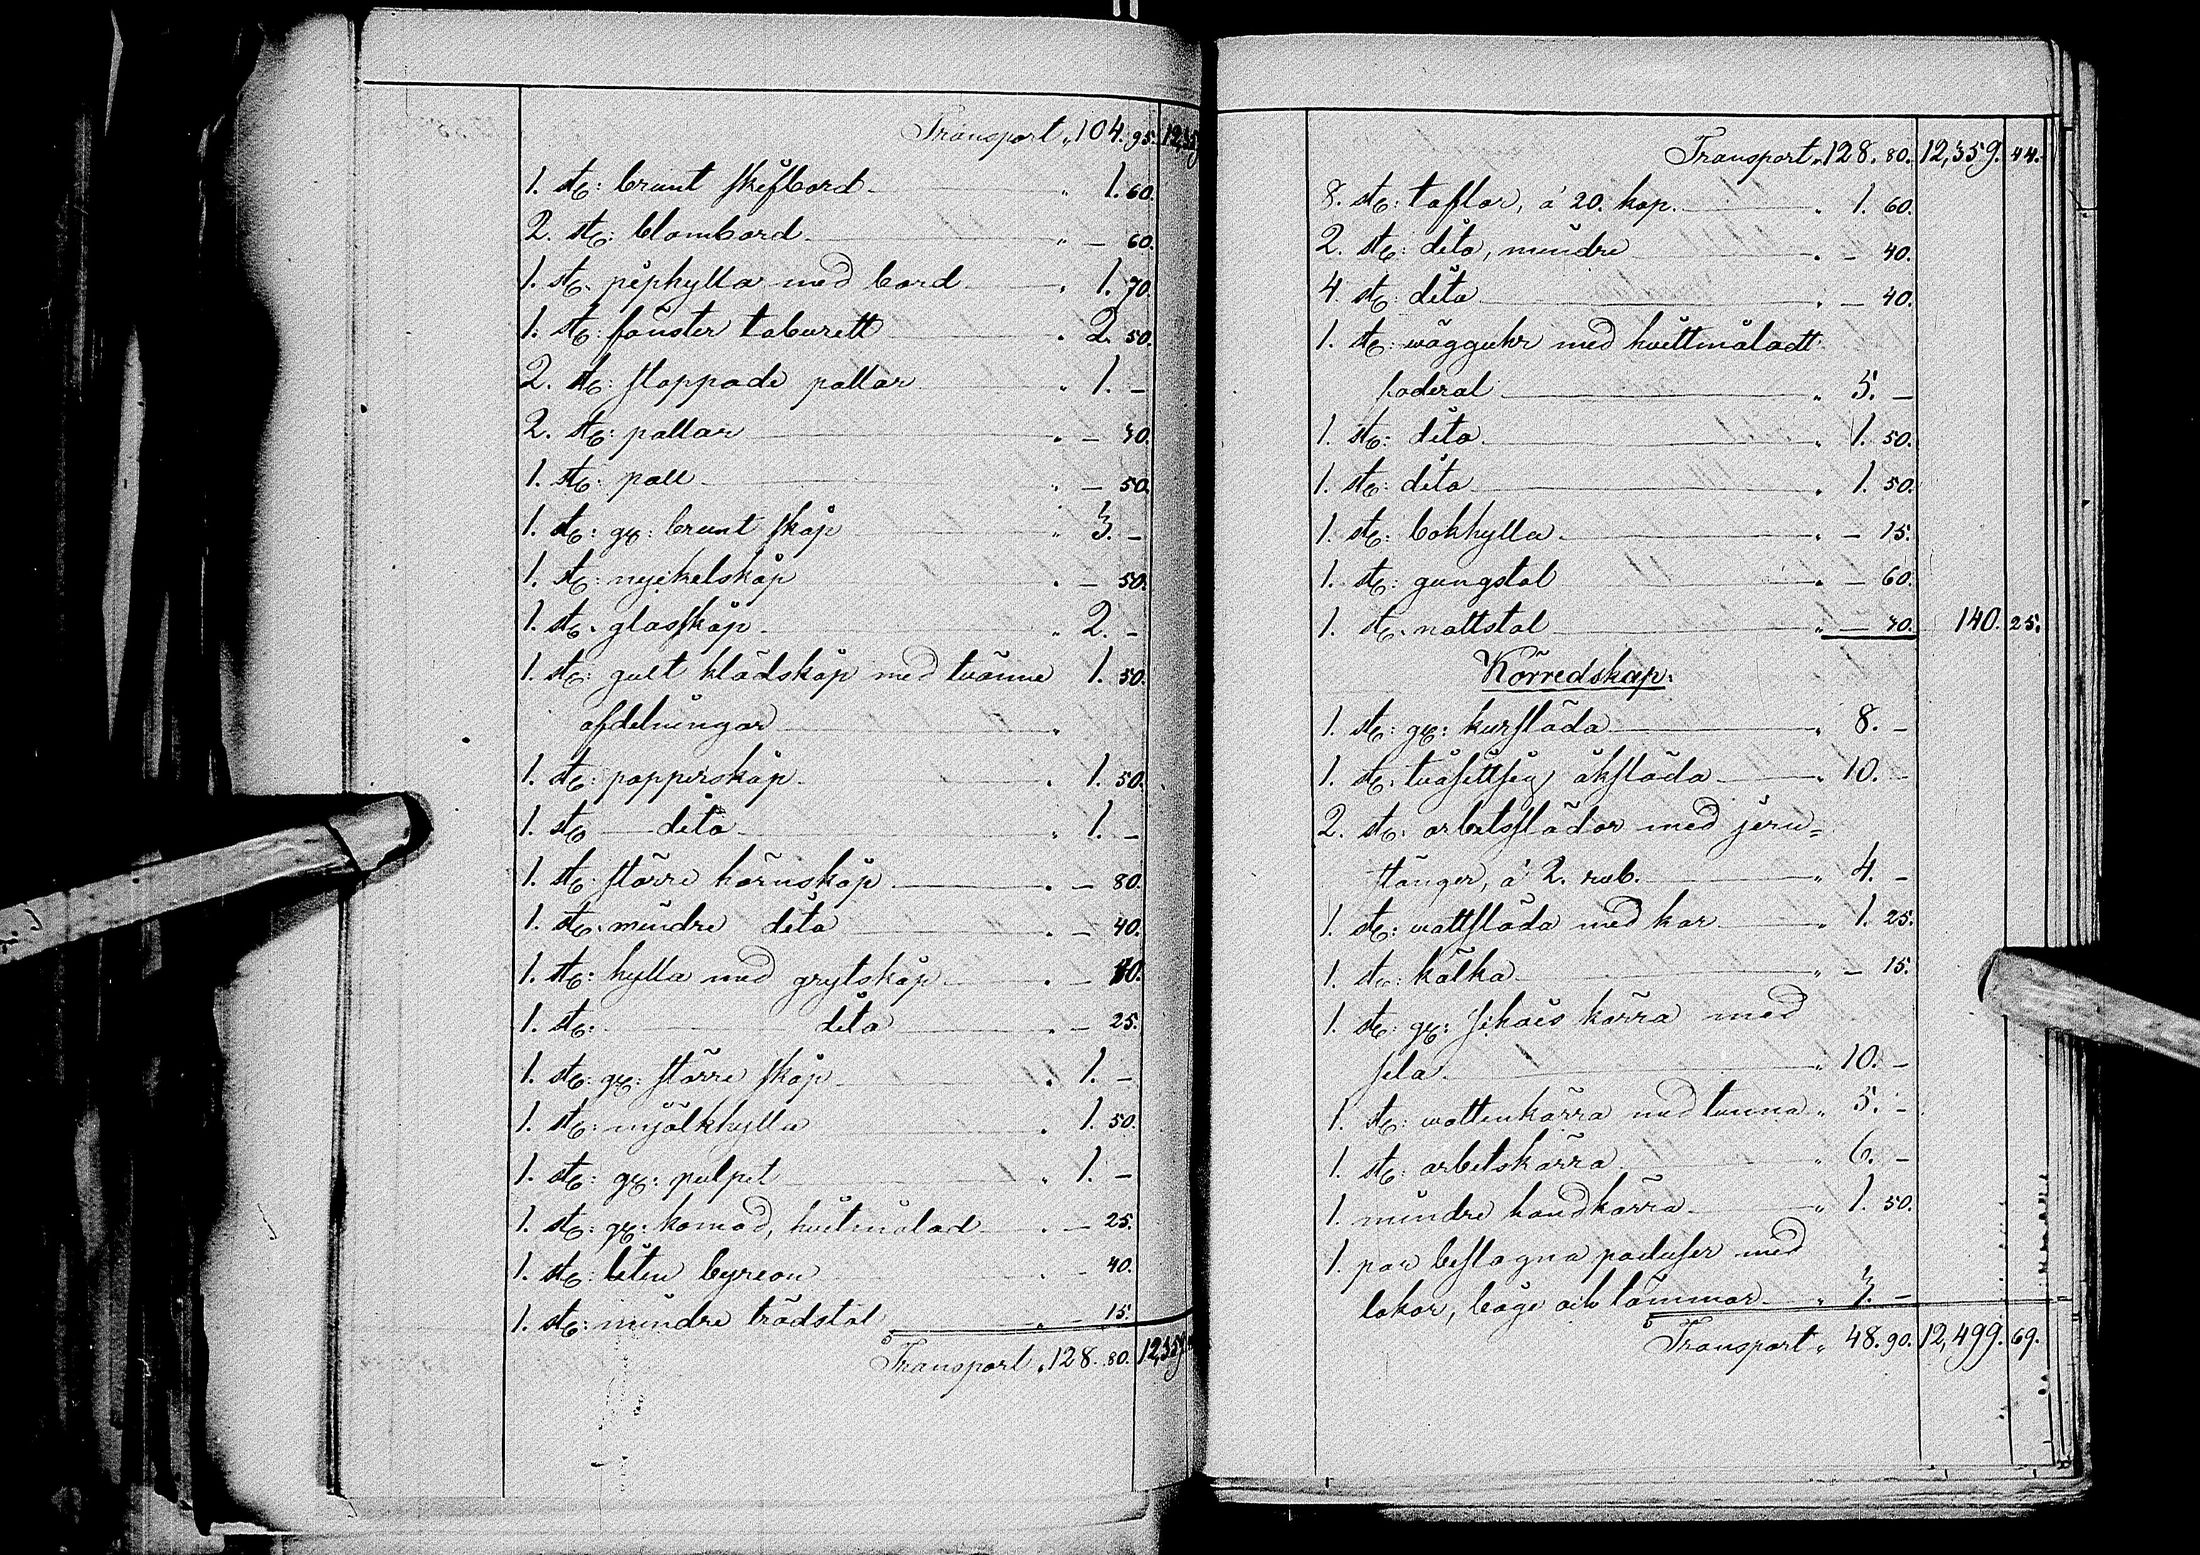 Transport „ 104. 95. 12,359
1. st: brunt skifbord „ 1. 60.
2. st: blombord „ — 60.
1. st. piphylla med bord „ 1. 70.
1. st: fönster taburett „ 2. 50.
2. st: stoppade pallar „ 1. —
2. st: pallar „ — 30.
1. st: pall „ — 50.
1. st: gl: brunt skåp „ 3. —
1. st: nyckelskåp „ — 50.
1. st. glasskåp „ 2. —
1. st: gult klädskåp med tvänne 1. 50.
afdelningar „
1. st: papperskåp „ 1. 50.
1. st — dito „ 1. —
1. st: större hörnskåp „ — 80.
1. st. mindre dito „ — 40.
1. st: hylla med grytskåp „ — 10.
1. st: dito „ — 25.
1. st: gl: större skåp „ 1. —
1. st: mjölkhylla „ 1. 50.
1. st: gl: pulpet „ 1. —
1. st: gl: komod, hvitmålad „ — 25.
1. st: liten byrean „ — 40.
1. st: mindre trädstol „ — 15.
Transport „ 128. 80. 12,359
Transport „ 128. 80. 12,359. 44.
8. st: taflor, á 20. kop. „ 1. 60.
2. st: dito, mindre „ — 40.
4. st: dito „ — 40.
1. st: wägguhr med hvittmåladt
foderal „ 5. —
1. st: dito „ 1. 50.
1. st: dito „ 1. 50.
1. st: bokhylla „ — 15.
1. st: gungstol „ — 60.
1. st. nattstol „ — 30. 140. 25.
Körredskap.
1. st: gl: kursläda „ 8. —
1. st. tvåsittsig åksläda „ 10. —
2. st: arbetsslädor med jern-
stänger, á 2. rub. „ 4. —
1. st: wattsläda med kar „ 1. 25.
1. st: kälka „ — 15.
1. st: gl: kärra med
sela „ 10. —
1. st: wattenkärra med tunna „ 5. —
1. st: arbetskärra „ 6. —
1. mindre handkärra „ 1. 50.
1. par beslagna med
lokor, båge och tömmar „ 3. —
Transport „ 48. 90. 12,499. 69.